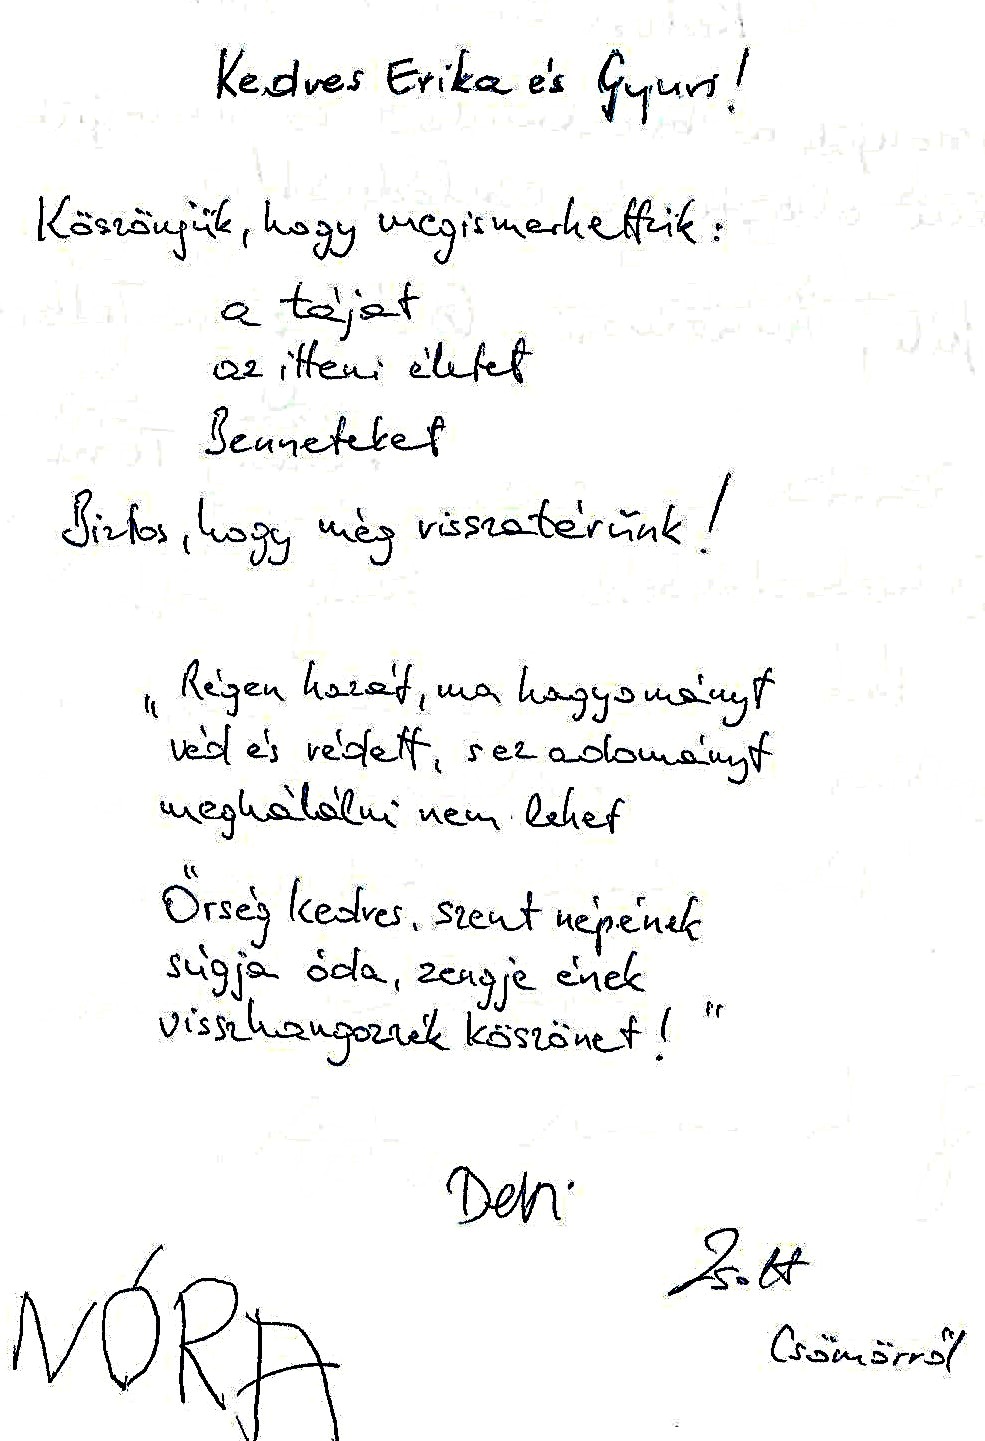 Kedves Erika és Gyuri!
Köszönjük, hogy megismerhettük:
a tájat
az itteni életet
Benneteket
Biztos, hogy még visszatérünk!
„Régen hazát, ma hagyományt
véd és védett, s ez adományt
meghálálni nem lehet
Őrség kedves, szent népének
súgja óda, zengje ének
visszhangozzék köszönet!"
Debi
Zsolt
NÓRA
Csömörről